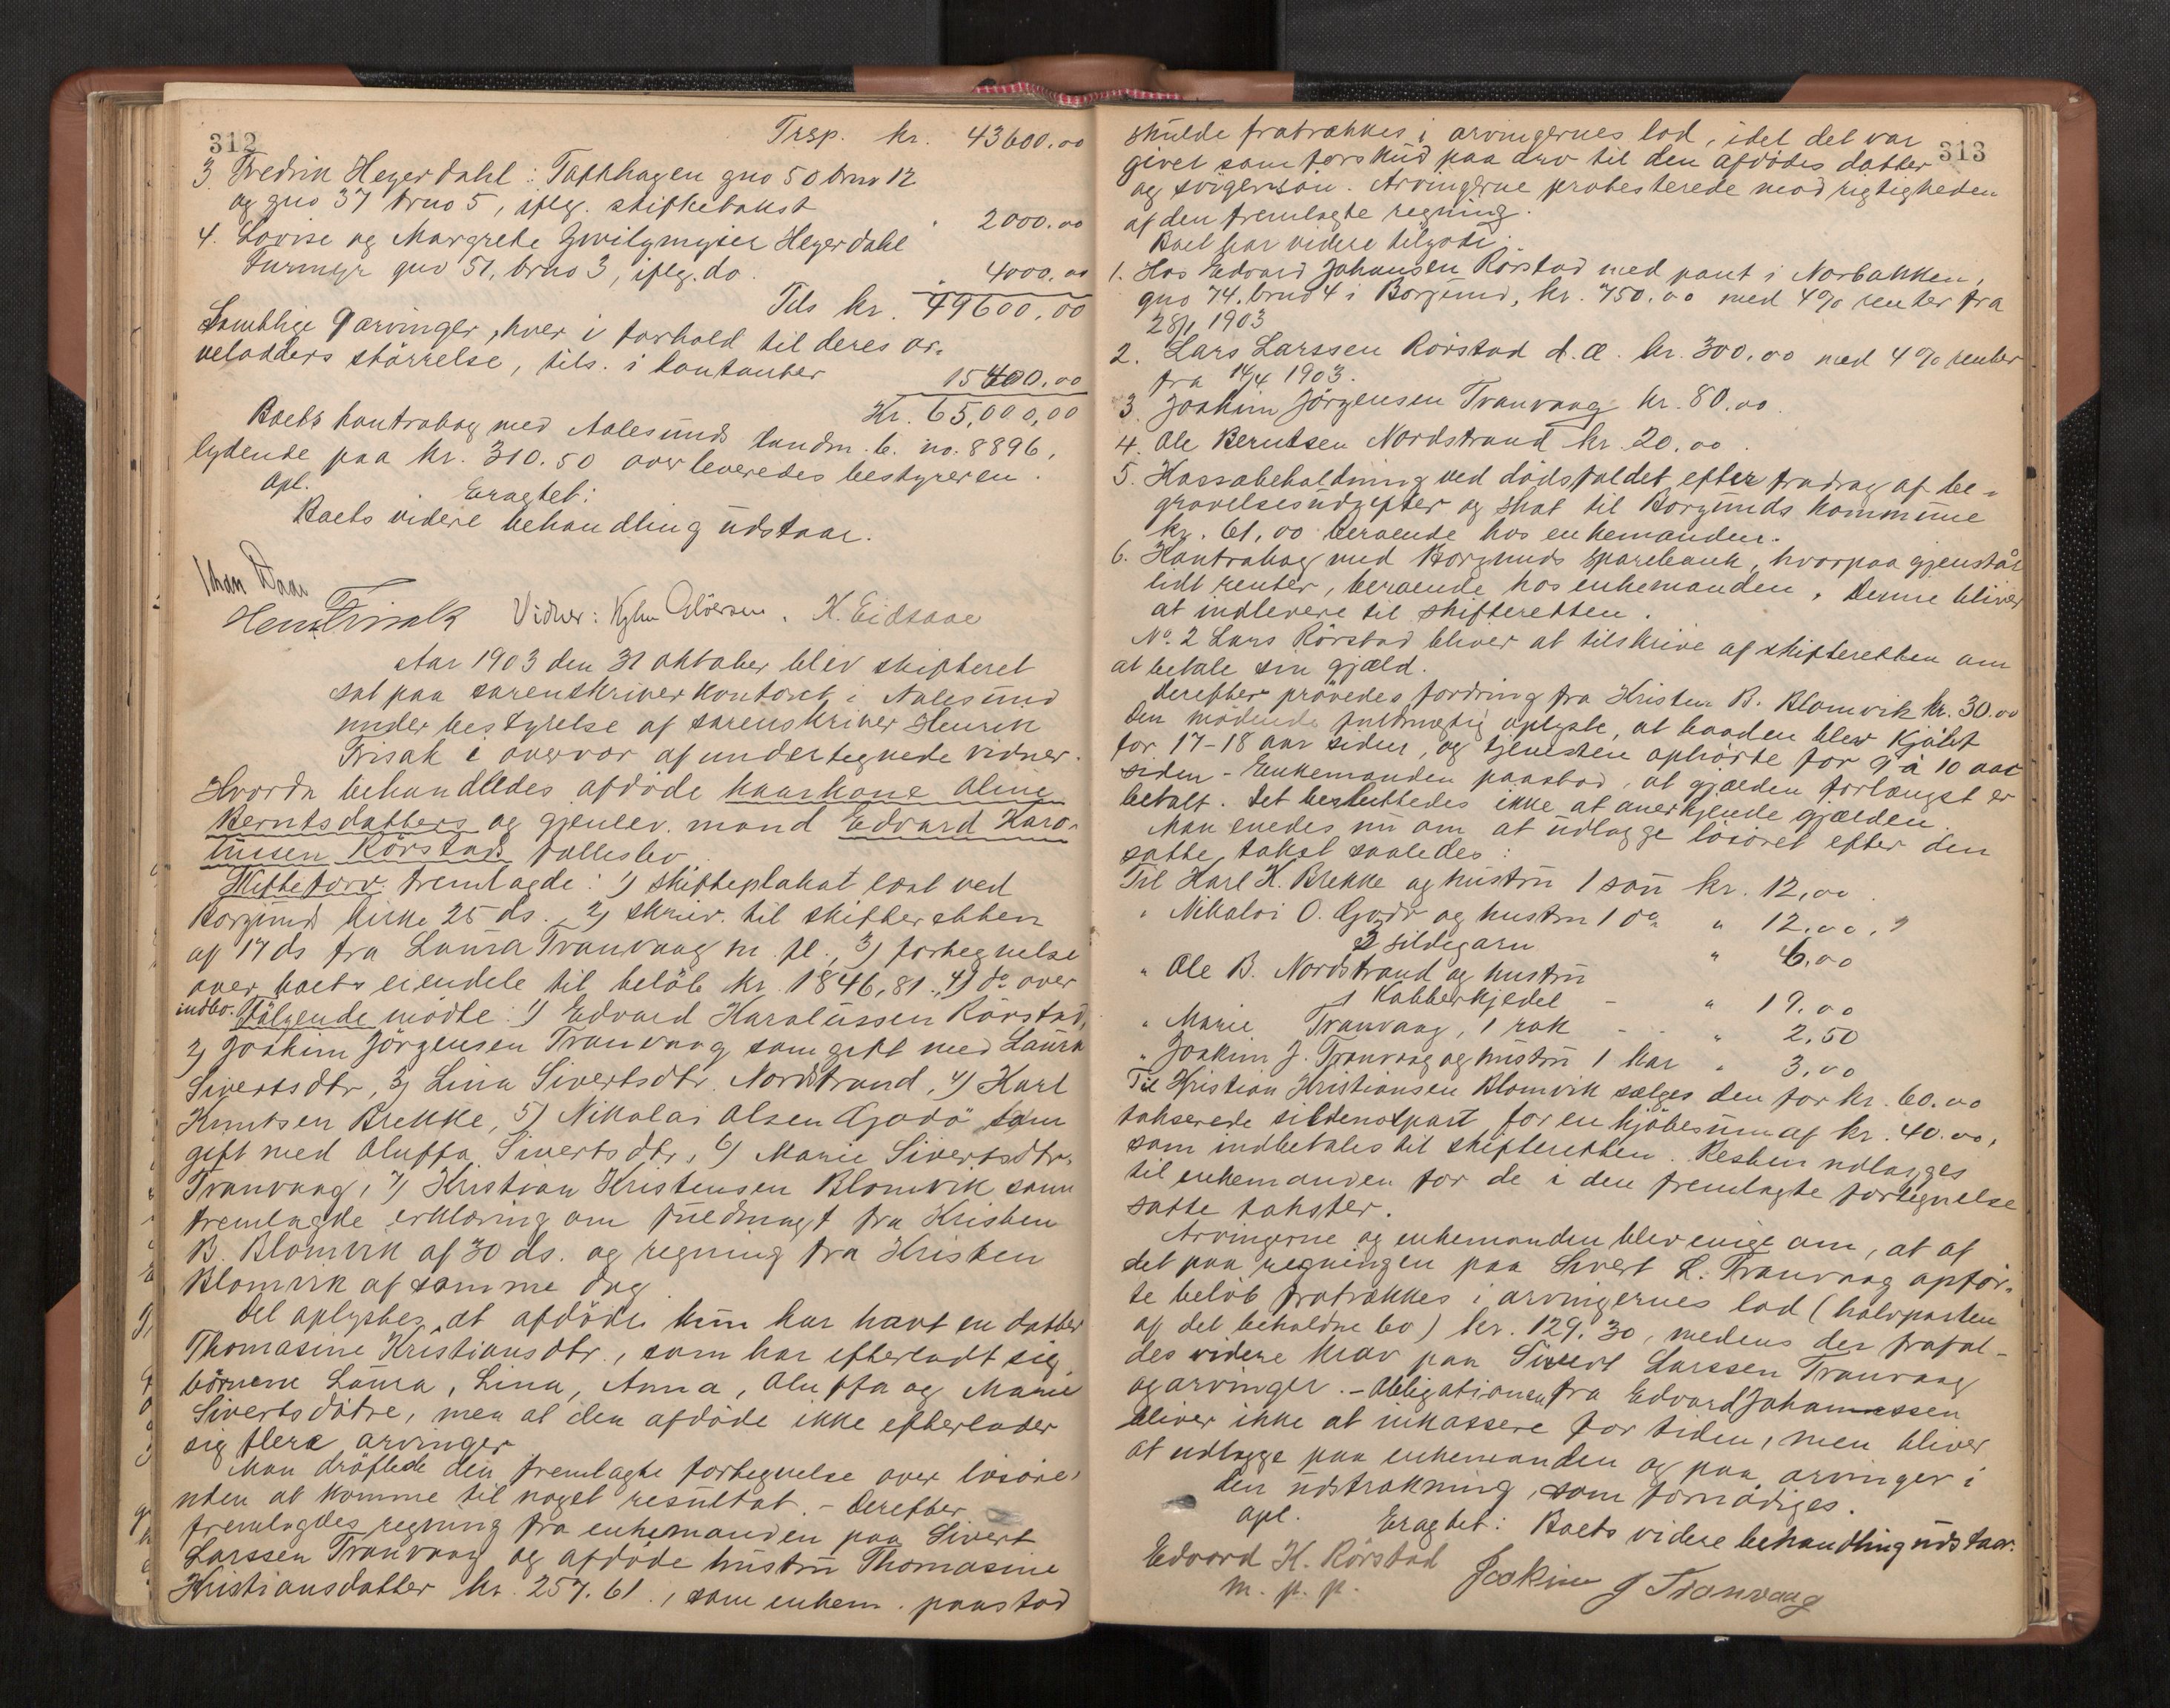 312
Trsp. kr. 43600.00
3 Fredrik Heyerdahl: Tafthagen gno 50 brno 12
og gno 37 brno 5, iflg. skiftetakst " 2000.00
4. Lovise og Margrete Heyerdahl
gno 51, brno 3, iflg. do. " 4000.00
Tils kr. 49600.00
Samtlige 9 arvinger, hver i forhold til deres ar-
velodders størrelse, tils. i kontanter 15400.00
Kr. 65,000,00
Boets kontrabog med Aalesunds landm. b. no. 8896,
lydende paa kr. 310.50 overleveredes bestyreren.
Opl. Eragtet:
Boets videre behandling udstaar.
Johan Daae
Henr. Frisak Vidner: K. Eidsaae
Aar 1903 den 31 oktober blev skifteret
sat paa sorenskriverkontoret i Aalesund
under bestyrelse af sorenskriver Henrik
Frisak i overvær af undertegnede vidner.
Hvorda behandledes afdøde kaarkone Oline
Berntsdatters og gjenlev. mand Edvard Karo-
liussen Rørstads fællesbo
Skifteforv. fremlagde: 1) skifteplakat læst ved
Borgund kirke 25 ds., 2) skriv. til skifteretten
af 17 ds fra Laura Tranvaag m. fl., 3) fortegnelse
over boets eiendele til beløb kr. 1846,81., 4) do over
indbo. Følgende mødte: 1) Edvard Karoliussen Rørstad,
2) Joakim Jörgensen Tranvaag som gift med Laura
Sivertsdtr, 3) Lina Sivertsdtr. Nordstrand, 4) Karl
Knutsen Brekke, 5) Nikolai Olsen Godö som
gift med Oluffa Sivertsdtr, 6) Marie Sivertsdtr.
Tranvaag, 7) Kristian Kristensen Blomvik som
fremlagde erklæring om fuldmagt fra Kristen
B. Blomvik af 30 ds. og regning fra Kristen
Blomvik af samme dag
Det oplystes, at afdöde kun har havt en datter
Thomasine Kristiansdtr., som har efterladt sig
börnene Laura, Lina, Anna, Oluffa og Marie
Sivertsdötre, men at den afdöde ikke efterlader
sig flere arvinger
Man dröftede den fremlagte fortegnelse over lösöre,
uden at komme til noget resultat. – Derefter
fremlagdes regning fra enkemanden paa Sivert
Larssen Tranvaag og afdöde hustru Thomasine
Kristiansdatter kr. 257.61., som enkem. paastod
313
skulde fratrækkes i arvingernes lod, idet det var
givet som forskud paa arv til den afdödes datter
og svigersön. Arvingerne protesterede mod rigtigheden
af den fremlagte regning.
Boet har videre tilgode:
1. Hos Edvard Johansen Rörstad med pant i Norbakken,
gno 74, brno 4 i Borgund, kr. 750.00 med 4% renter fra
28/1 1903
2. Lars Larssen Rörstad d. æ. kr. 300.00 med 4% renter
fra 14/4 1903.
3. Joakim Jörgensen Tranvaag kr. 80.00.
4. Ole Berntsen Nordstrand kr. 20.00.
5. Kassabeholdning ved dödsfaldet efter fradrag af be-
gravelsesudgifter og skat til Borgunds kommune
kr. 61,00 beroende hos enkemanden.
6. Kontrabog med Borgunds sparebank, hvorpaa gjenstår
lidt renter, beroende hos enkemanden. Denne bliver
at indlevere til skifteretten.
No. 2 Lars Rörstad bliver at tilskrive af skifteretten om
at betale sin gjæld.
Derefter prövedes fordring fra Kristen B. Blomvik kr. 30.00
Den mödende fuldmægtig oplyste, at baaden blev kjöbt
for 17-18 aar siden, og tjenesten ophörte for 9 à 10 aar
siden – Enkemanden paastod, at gjælden forlængst er
betalt. Det besluttedes ikke at anerkjende gjælden.
Man enedes nu om at udlægge lösöret efter den
satte takst saaledes:
Til Karl K. Brekke og hustru 1 sau kr. 12,00
" Nikolai O. Godö og hustru 1 do " 12.00.
2 sildegarn " 6,00
" Ole B. Nordstrand og hustru
1 Kobberkjedel – " 19.00
" Marie Tranvaag, 1 rok – – " 2.50
" Joakim J. Tranvaag og hustru 1 kar " 3.00
Til Kristian Kristiansen Blomvik sælges den for kr. 60.00
takserede sildenotpart for en kjöbesum af kr. 40.00,
som indbetales til skifteretten. Resten udlægges
til enkemanden for de i den fremlagte fortegnelse
satte takster.
Arvingerne og enkemanden blev enige om, at af
det paa regningen paa Sivert L. Tranvaag opför-
te belöb fratrækkes i arvingernes lod (halvparten
af det beholdne bo) kr. 129.30, medens der frafal-
des videre krav paa Sivert Larssen Tranvaag
og arvinger. – Obligationen fra Edvard Johannessen
bliver ikke at inkassere for tiden, men bliver
at udlægge paa enkemanden og paa arvinger i
den udstrækning, som fornödiges.
Opl. Eragtet: Boets videre behandling udstaar.
Edvard K. Rörstad Joakim J Tranvaag
m. p. p.